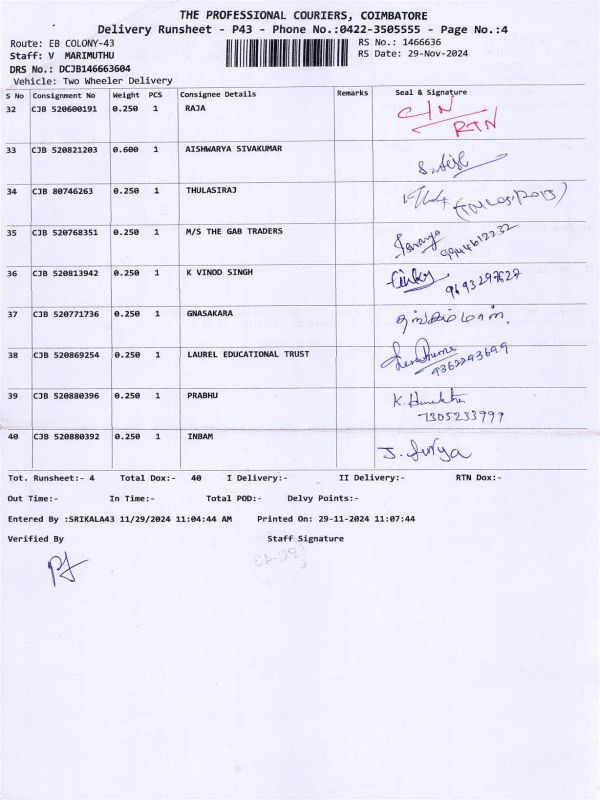 THE PROFESSIONAL COURIERS, COIMBATORE
Delivery Runsheet - P43 - Phone No.:0422-3505555 - Page No.:4
Route: EB COLONY-43 RS No.: 1466636
Staff: V MARIMUTHU RS Date: 29-Nov-2024
DRS No.: DCJB146663604
Vehicle: Two Wheeler Delivery
S No Consignment No Weight PCS Consignee Details Remarks Seal & Signature
32 CJB 520600191 0.250 1 RAJA C/N
RTN
33 CJB 520821203 0.600 1 AISHWARYA SIVAKUMAR
34 CJB 80746263 0.250 1 THULASIRAJ
35 CJB 520768351 0.250 1 M/S THE GAB TRADERS
9944612232
36 CJB 520813942 0.250 1 K VINOD SINGH
9693297627
37 CJB 520771736 0.250 1 GNASAKARA
38 CJB 520869254 0.250 1 LAUREL EDUCATIONAL TRUST
9362293699
39 CJB 520880396 0.250 1 PRABHU
7305233999
40 CJB 520880392 0.250 1 INBAM J. Surya
Tot. Runsheet:- 4 Total Dox:- 40 I Delivery:- II Delivery:- RTN Dox:-
Out Time:- In Time:- Total POD:- Delvy Points:-
Entered By :SRIKALA43 11/29/2024 11:04:44 AM Printed On: 29-11-2024 11:07:44
Verified By Staff Signature